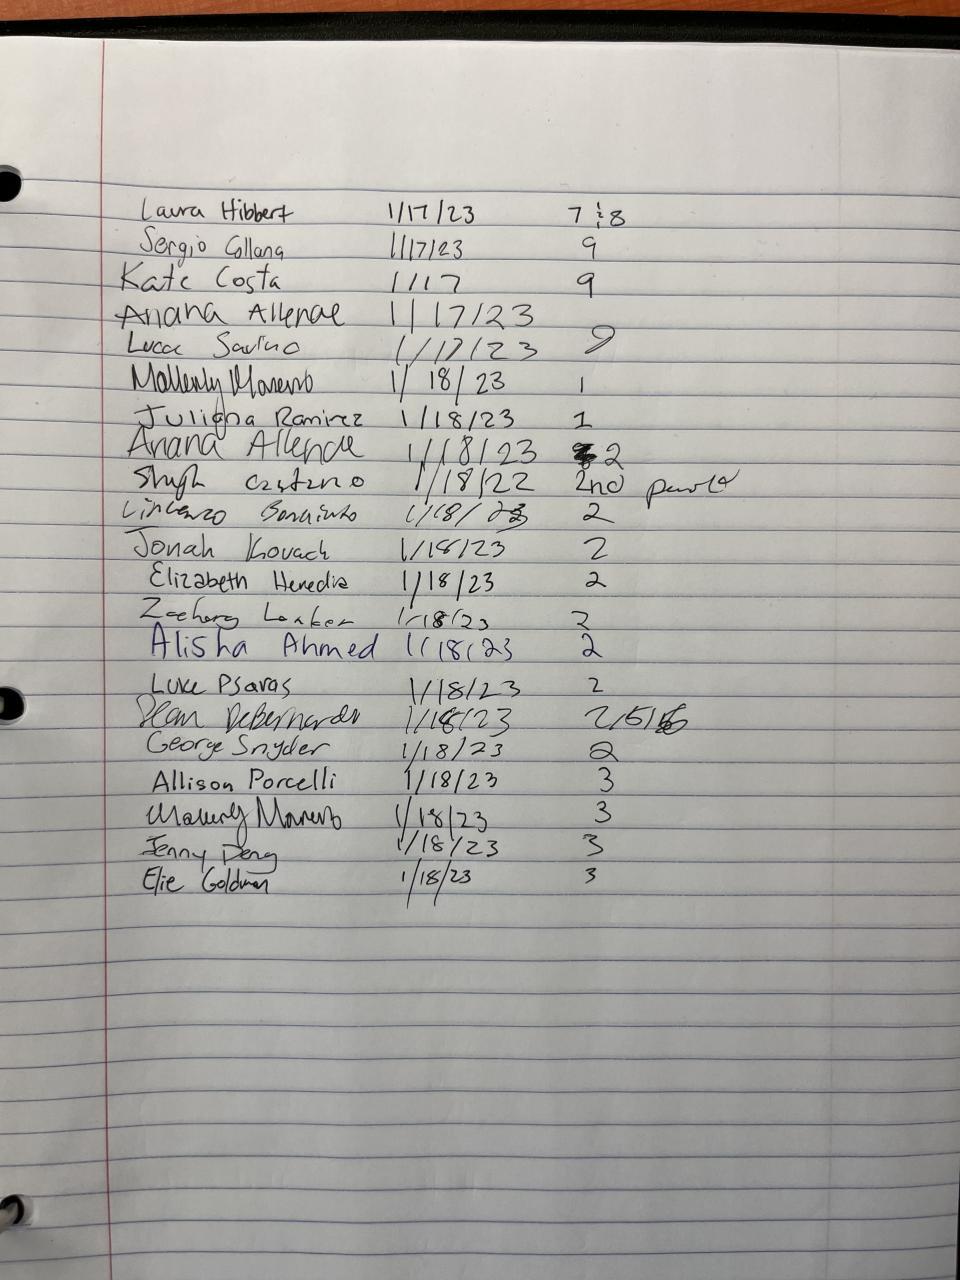 Laura Hibbert 1/17/23 7 & 8
Sergio Collana 1/17/23 9
Kate Costa 1/17 9
Ariana Allende 1/17/23
Lucca Savino 1/17/23 9
1/18/23 1
Juliana Ramirez 1/18/23 1
Ariana Allende 1/18/23 2
1/18/22 2nd
Vincenzo 1/18/23 2
Jonah Kovach 1/18/23 2
Elizabeth Heredia 1/18/23 2
Zachary 1/18/23 2
Alisha Ahmed 1/18/23 2
Luke Psaras 1/18/23 2
Sean DeBernardo 1/18/23 2/5/6
George Snyder 1/18/23 2
Allison Porcelli 1/18/23 3
1/18/23 3
Jenny Deng 1/18/23 3
Elie Goldman 1/18/23 3